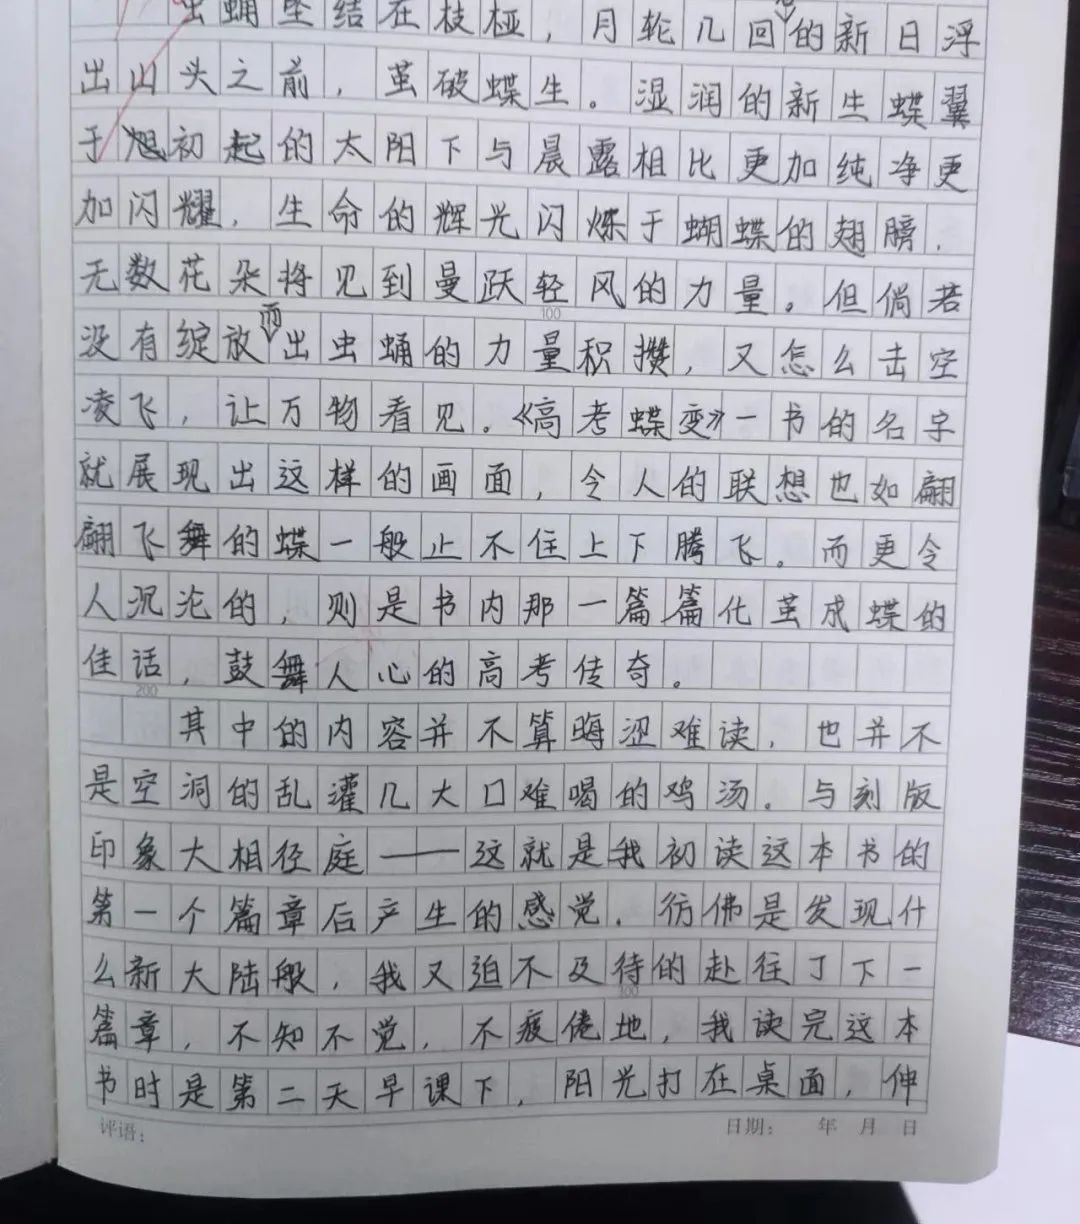 虫蛹坠结在枝桠，月轮几回的新日浮
出山头之前，茧破蝶生。湿润的新生蝶翼
于旭初起的太阳下与晨露相比更加纯净更
加闪耀，生命的辉光闪烁于蝴蝶的翅膀，
无数花朵将见到曼跃轻风的力量。但倘若
100
没有绽放而出虫蛹的力量积攒，又怎么击空
凌飞，让万物看见。《高考蝶变》一书的名字
就展现出这样的画面，令人的联想也如翩
翩飞舞的蝶一般止不住上下腾飞。而更令
人沉沦的，则是书内那一篇篇化茧成蝶的
佳话，鼓舞人心的高考传奇。
200
其中的内容并不算晦涩难读，也并不
是空洞的乱灌几大口难喝的鸡汤。与刻版
印象大相径庭——这就是我初读这本书的
第一个篇章后产生的感觉，彷佛是发现什
么新大陆般，我又迫不及待的赴往了下一
300
篇章，不知不觉，不疲倦地，我读完这本
书时是第二天早课下，阳光打在桌面，伸
评语：
日期： 年 月 日